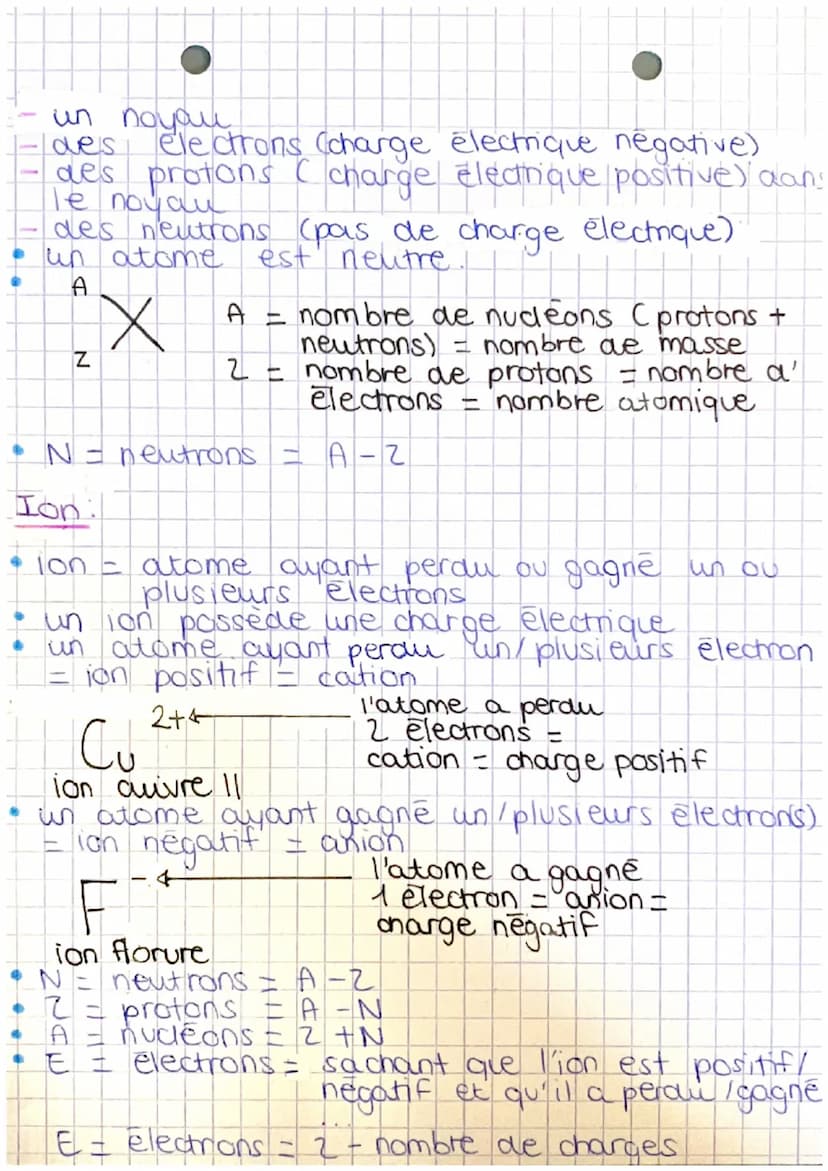 - un noyau
- des électrons (charge électrique négative)
- des protons ( charge électrique positive) dans
le noyau
- des neutrons (pas de charge électrique)
• un atome est neutre.
• A
X
Z
A = nombre de nucléons ( protons +
neutrons) = nombre de masse
Z = nombre de protons = nombre d'
électrons = nombre atomique
• N = neutrons = A - Z
Ion :
• ion = atome ayant perdu ou gagné un ou
plusieurs électrons
• un ion possède une charge électrique
• un atome ayant perdu un/plusieurs électron
= ion positif = cation
Cu 2+ ← l'atome a perdu
2 électrons =
cation = charge positif
ion cuivre II
• un atome ayant gagné un/plusieurs électron(s)
= ion négatif = anion
F - ← l'atome a gagné
1 électron = anion =
charge négatif
ion florure
• N = neutrons = A - Z
• Z = protons = A - N
• A = nucléons = Z + N
• E = électrons = sachant que l'ion est positif/
négatif et qu'il a perdu /gagné
...
E = électrons = Z - nombre de charges